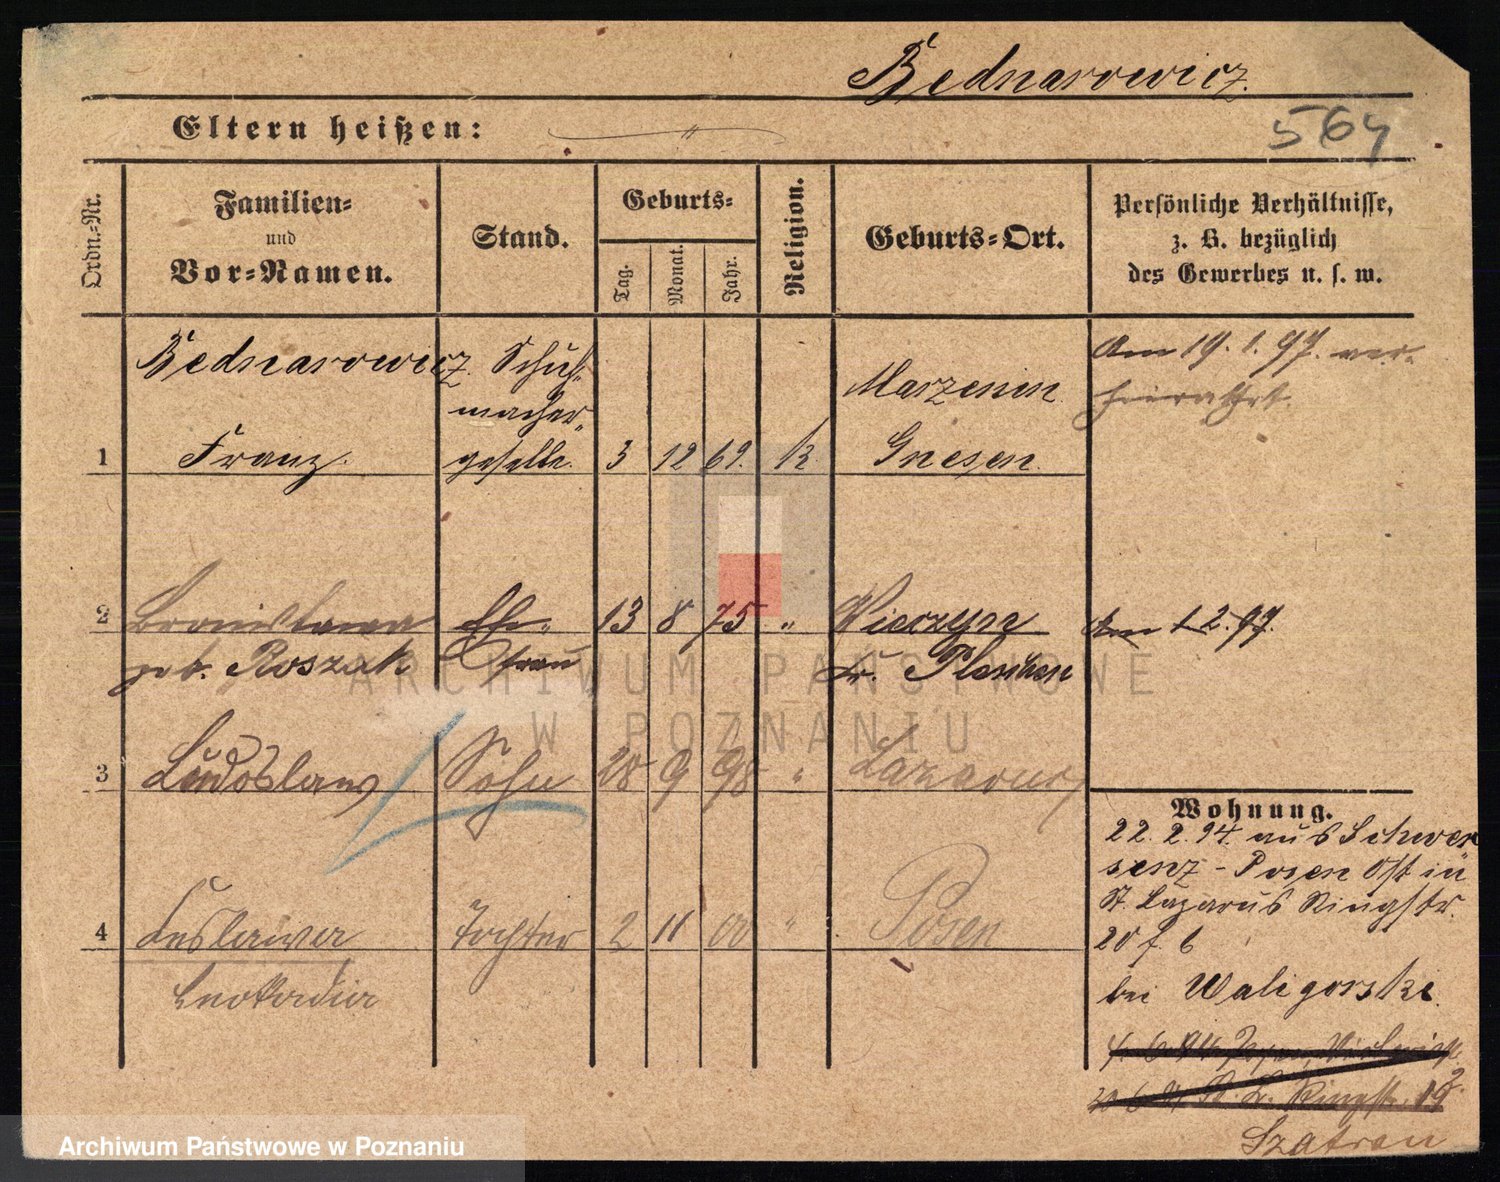 Bednarowicz.
Eltern heißen: "
564
Ordn.-Nr.
Familien-
und
Vor-Namen.
Stand.
Geburts-
Tag.
Monat.
Jahr.
Religion.
Geburts-Ort.
Persönliche Verhältnisse,
z. B. bezüglich
des Gewerbes u. s. w.
Bednarowicz. Schuh-
macher-
1 Franz. geselle. 3 12 69. K
Marzenin
Gnesen.
Am 19. 1. 97. ver-
heirathet.
2 Bronislawa Ehe- 13 8 75 " Wierzyce
geb. Roszak frau Kr. Pleschen
Am 1. 2. 97.
3 Ludoslaw Sohn 28 9 98 " Lazarus
4 Leslawa Tochter 2 11 00 " Posen
Leokadia
Wohnung.
22. 2. 94. aus Schwer
senz - Posen Ost in
St. Lazarus Ringstr.
20 f. 6
bei Waligorski.
Ringstr. 19
Szatran
ARCHIWUM PAŃSTWOWE
W POZNANIU
Archiwum Państwowe w Poznaniu